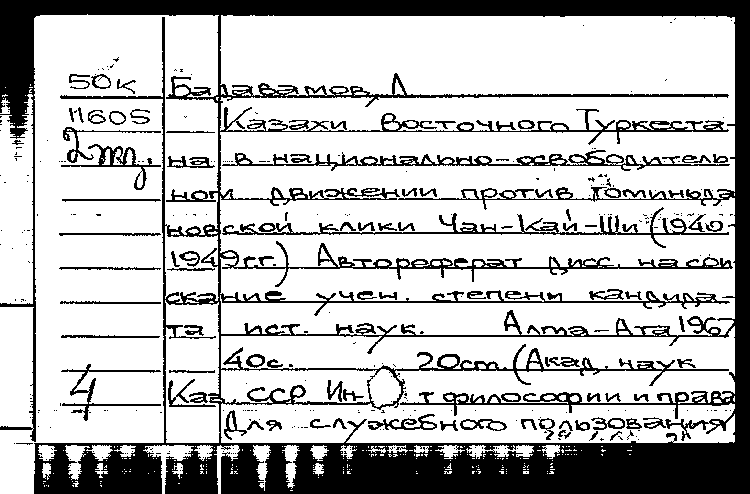 50к Бадавамов, Л
11605 Казахи Восточного Туркеста-
2 на в национально-освободитель-
ном движении против Гоминьда
новской клики Чан-Кай-Ши (1940-
1949 г.г.) Автореферат дисс. на сои
скание учен. степени кандида-
та ист. наук. Алма-Ата, 1967
40с. 20ст. (Акад. наук
4 Каз. ССР Ин-т философии и права
Для служебного пользования)